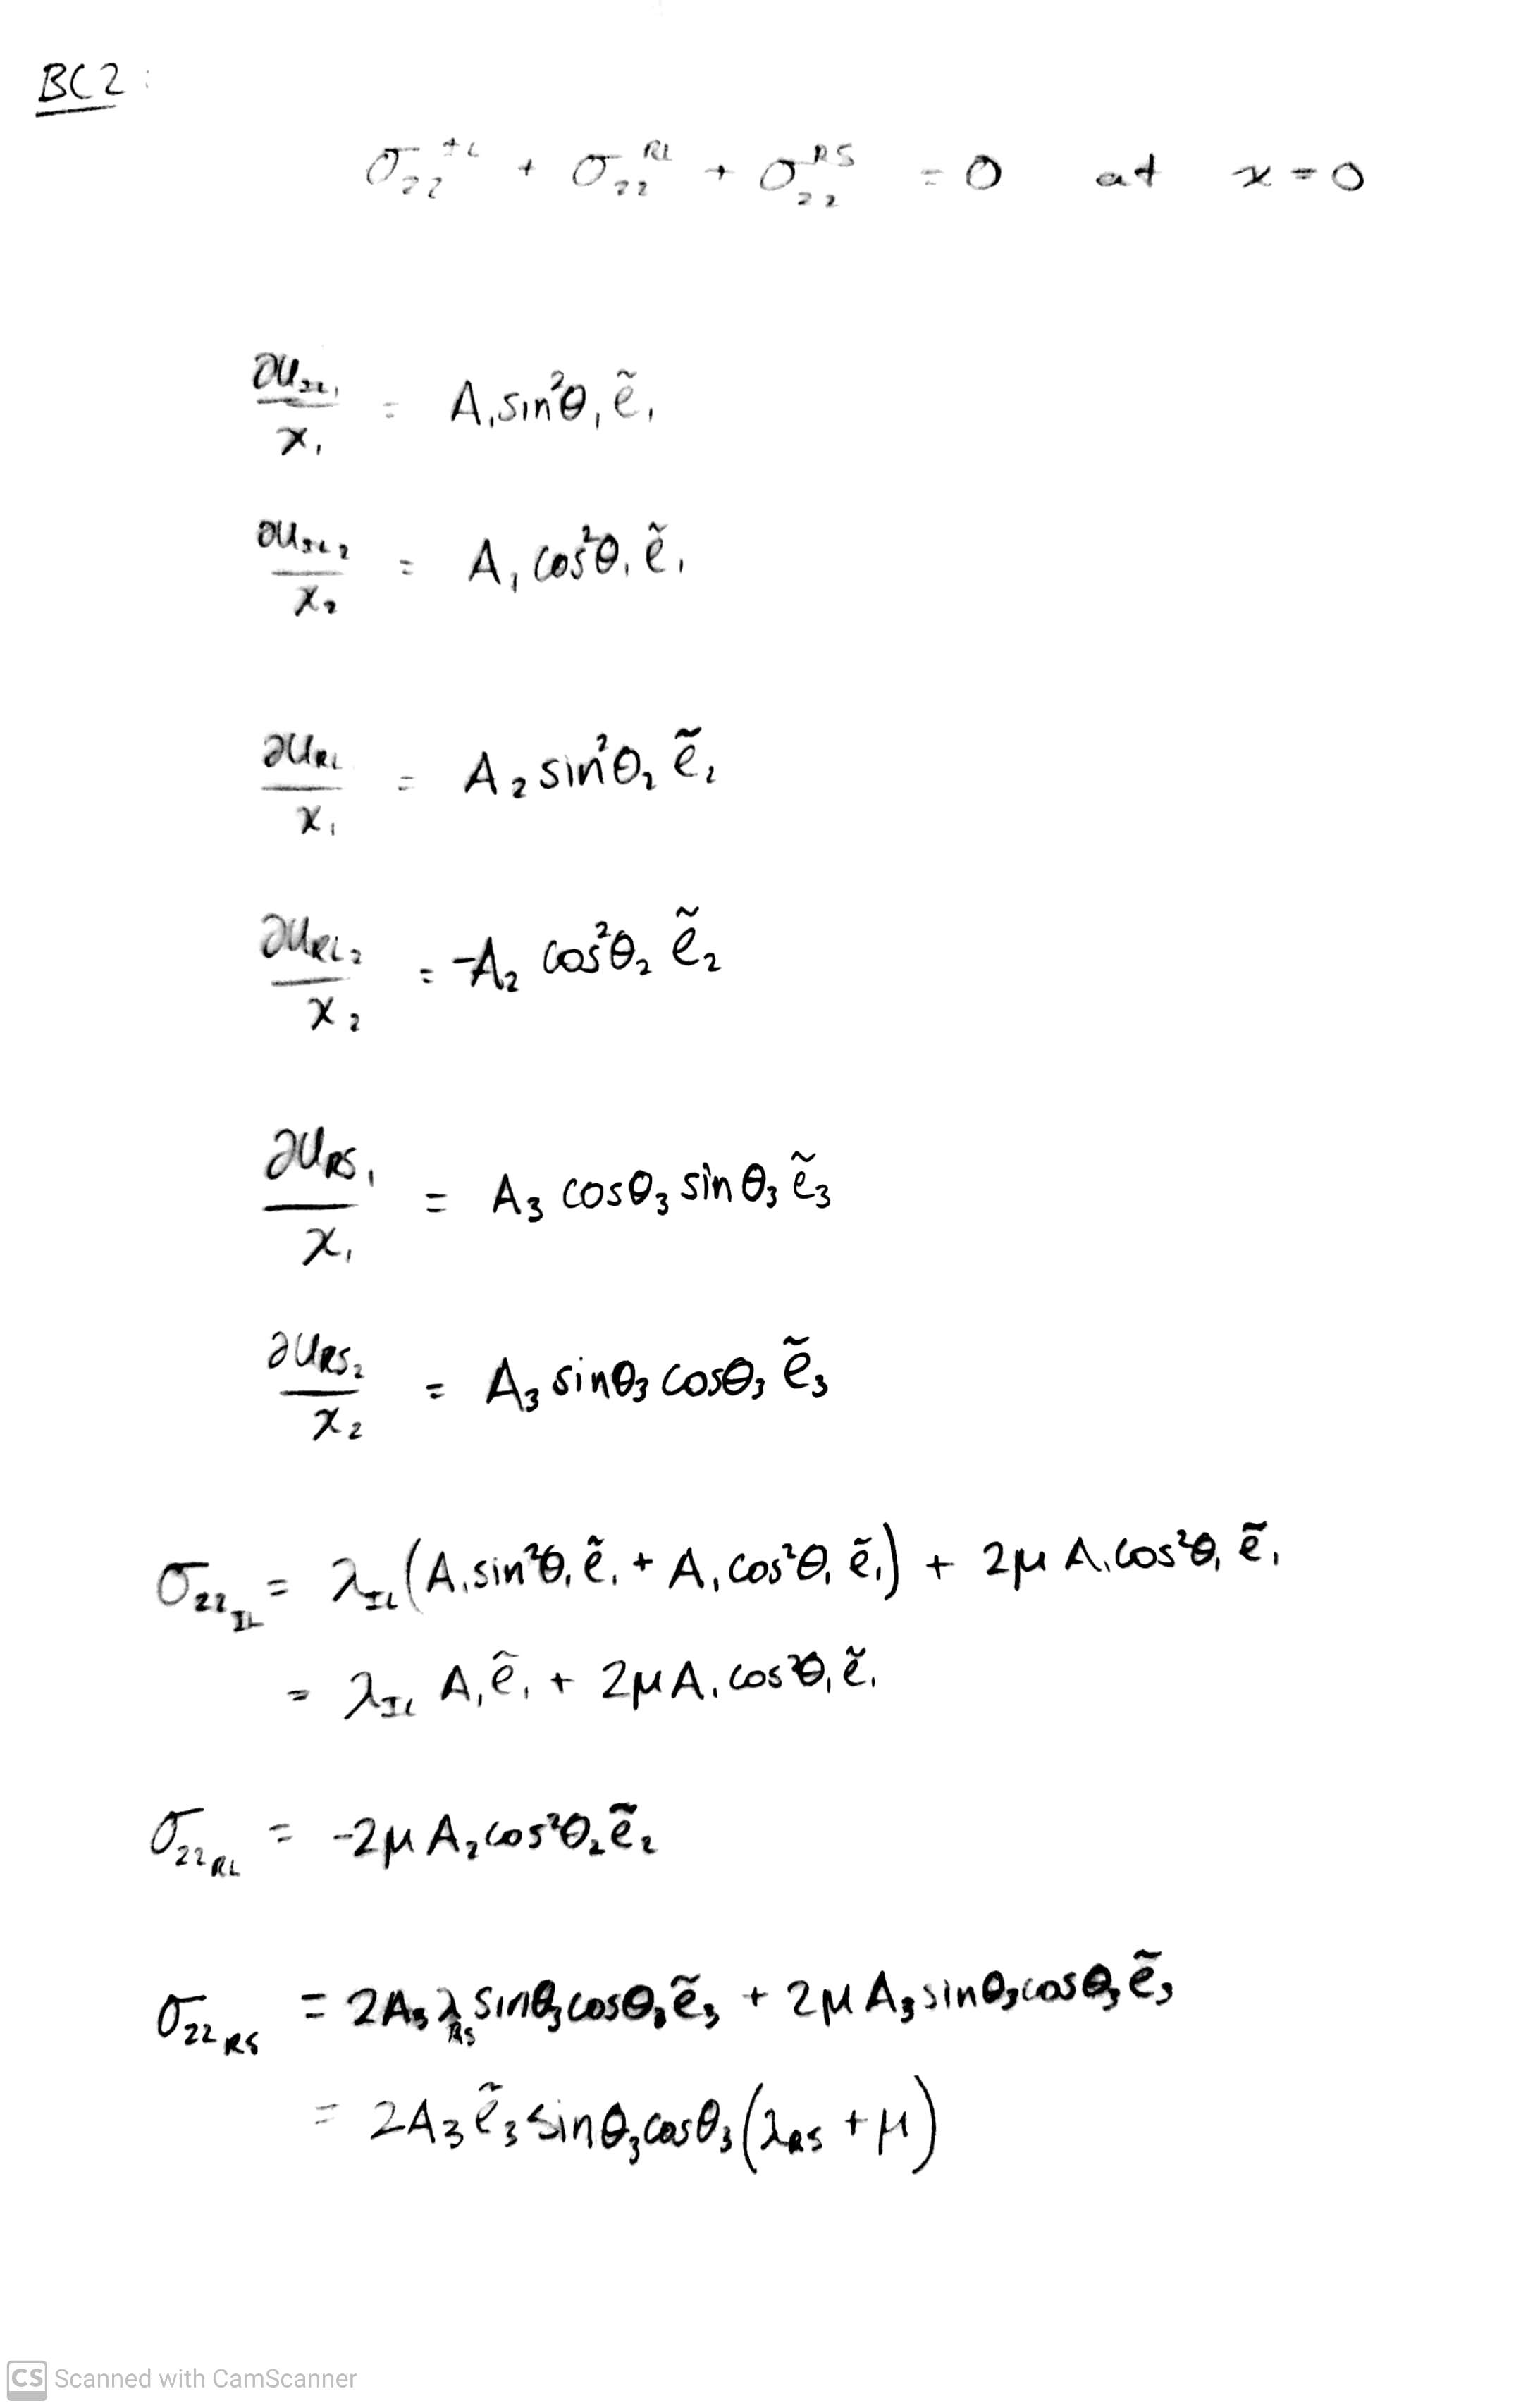 BC2:
σ₂₂^IL + σ₂₂^RL + σ₂₂^RS = 0 at x = 0
∂u_IL₁/x₁ = A₁sin²θ₁ẽ₁
∂u_IL₂/x₂ = A₁cos²θ₁ẽ₁
∂u_RL/x₁ = A₂sin²θ₂ẽ₂
∂u_RL₂/x₂ = -A₂cos²θ₂ẽ₂
∂u_RS₁/x₁ = A₃cosθ₃sinθ₃ẽ₃
∂u_RS₂/x₂ = A₃sinθ₃cosθ₃ẽ₃
σ₂₂_IL = λ_IL(A₁sin²θ₁ẽ₁ + A₁cos²θ₁ẽ₁) + 2μA₁cos²θ₁ẽ₁
= λ_IL A₁ẽ₁ + 2μA₁cos²θ₁ẽ₁
σ₂₂_RL = -2μA₂cos²θ₂ẽ₂
σ₂₂_RS = 2A₃λ_RS sinθ₃cosθ₃ẽ₃ + 2μA₃sinθ₃cosθ₃ẽ₃
= 2A₃ẽ₃sinθ₃cosθ₃(λ_RS + μ)
CS Scanned with CamScanner